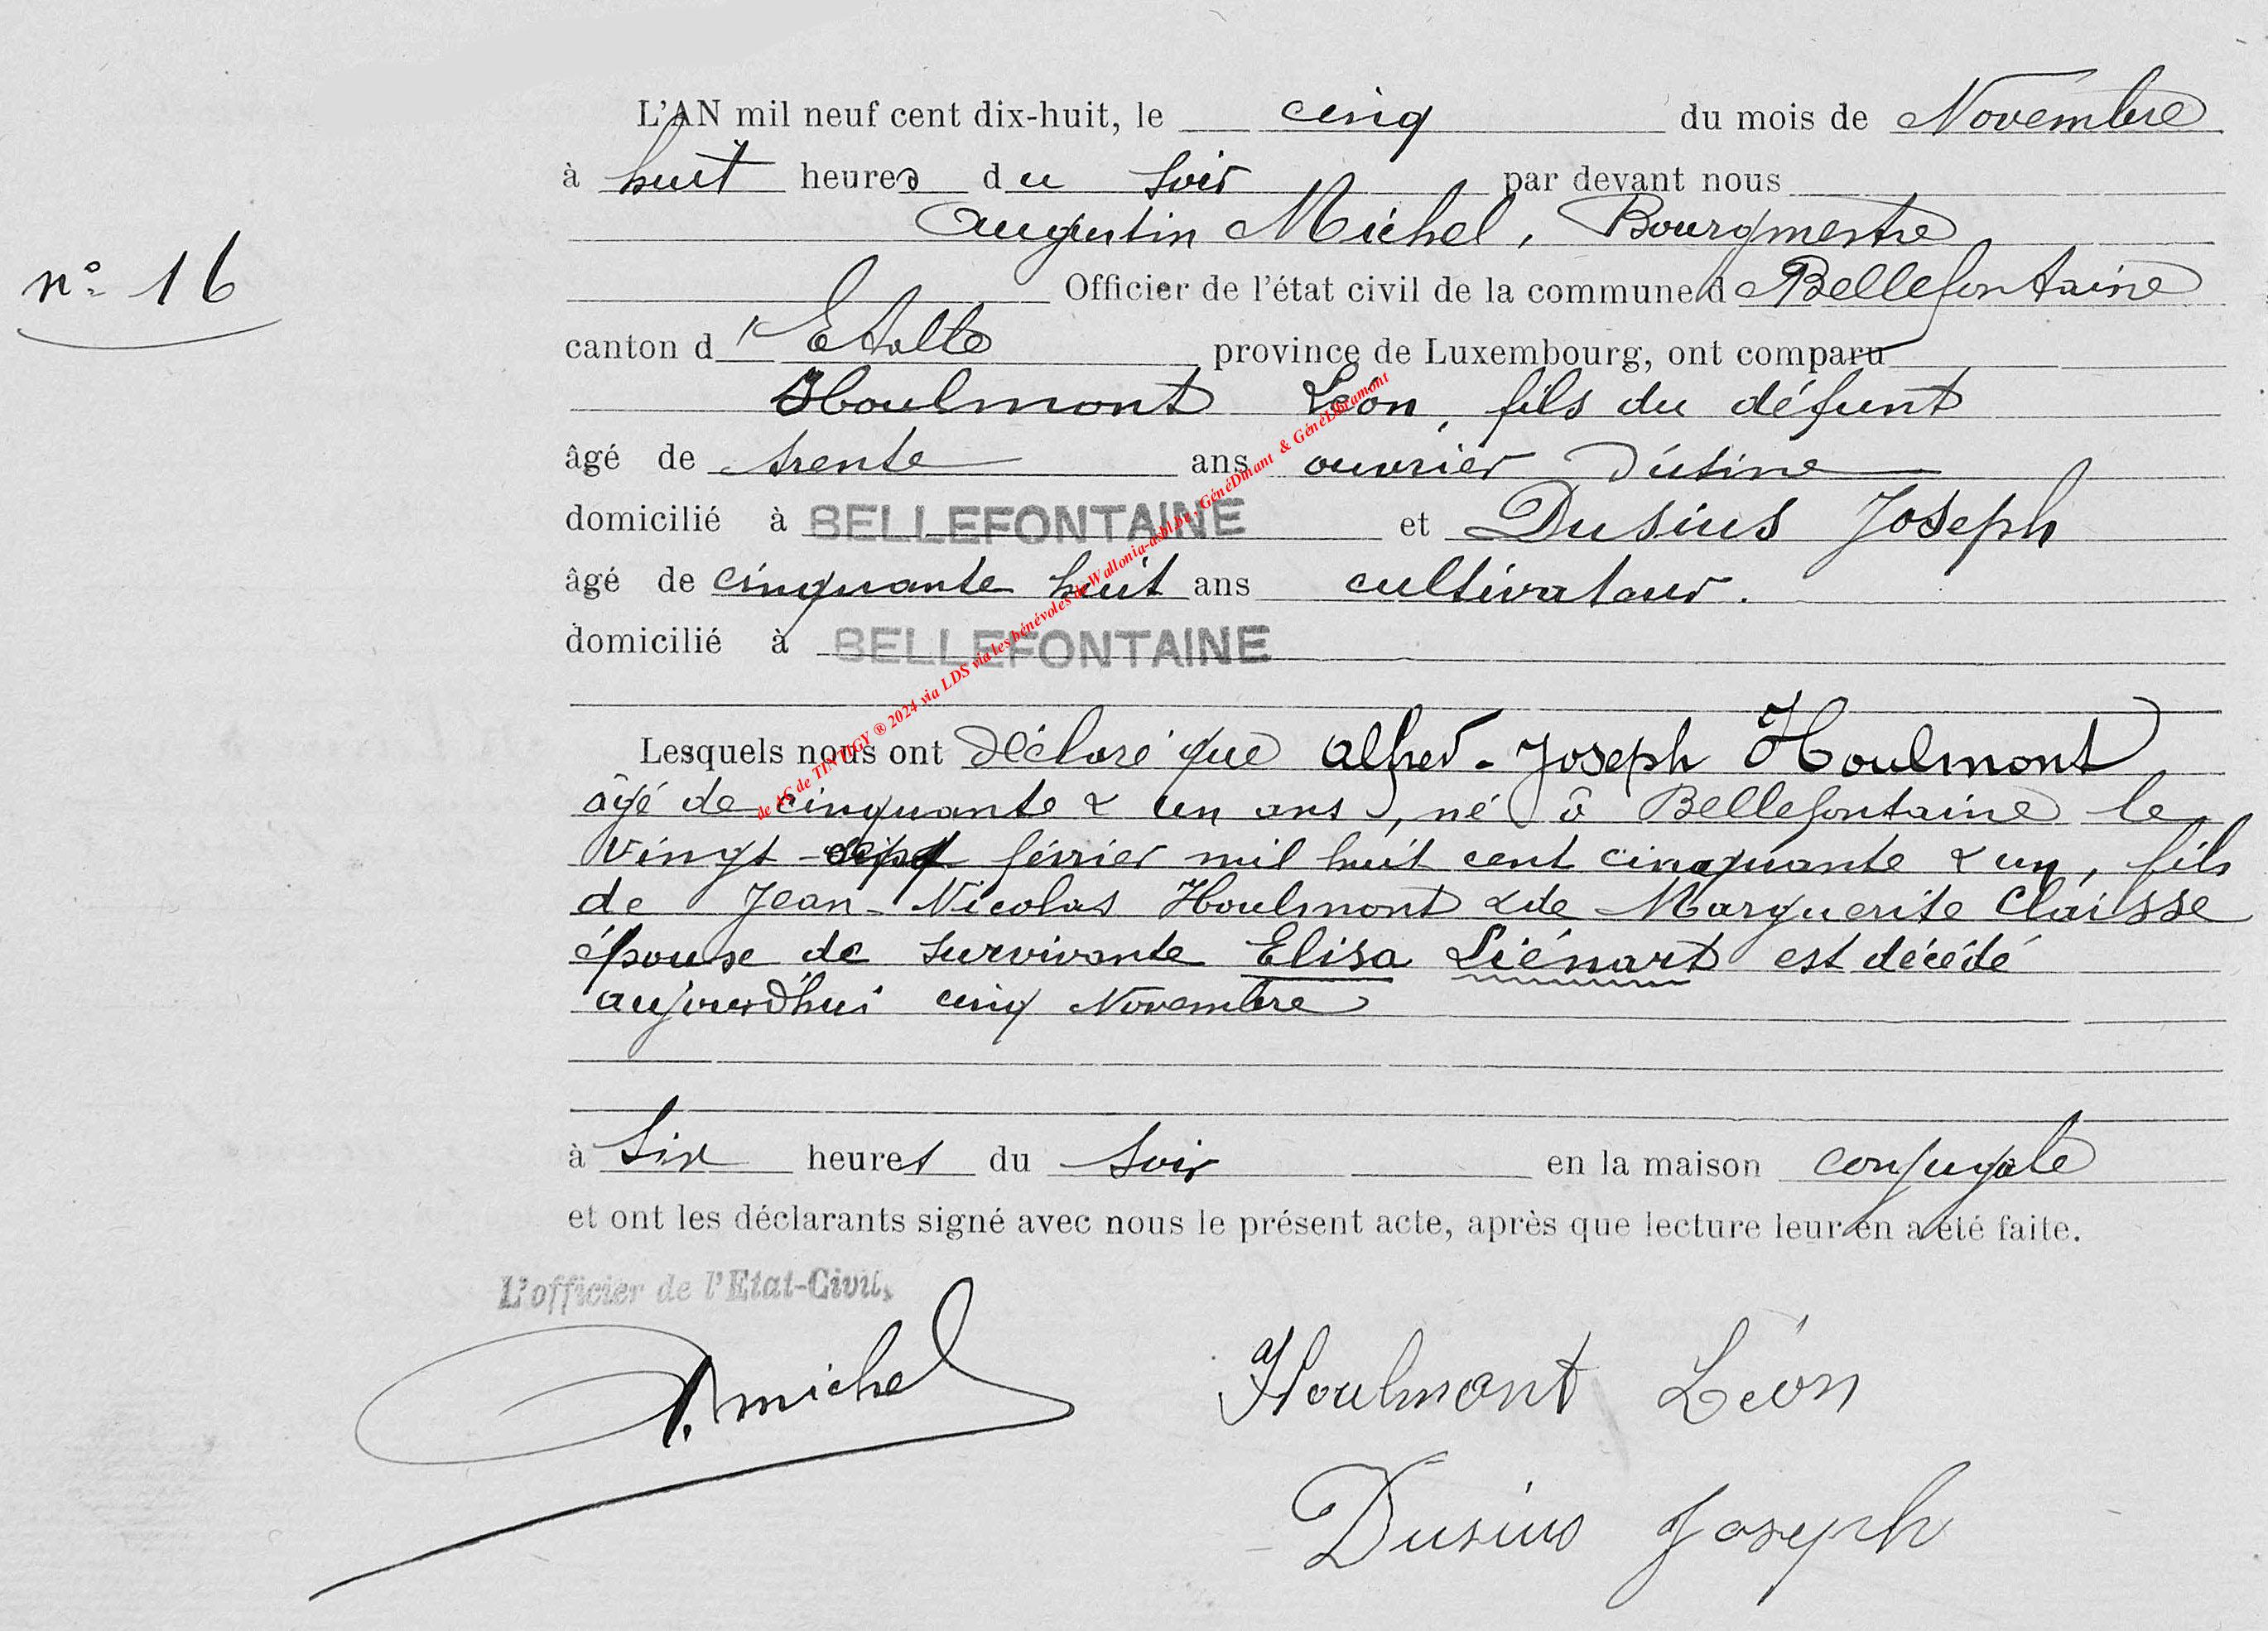 L'AN mil neuf cent dix-huit, le cinq du mois de Novembre
à huit heures du soir par devant nous
Augustin Michel, Bourgmestre
n° 16
Officier de l'état civil de la commune d Bellefontaine
canton d'Etalle province de Luxembourg, ont comparu
Houlmont Léon, fils du défunt
âgé de trente ans ouvrier d'usine
domicilié à BELLEFONTAINE et Dusius Joseph
âgé de cinquante huit ans cultivateur.
domicilié à BELLEFONTAINE
Lesquels nous ont déclaré que Alfred-Joseph Houlmont
âgé de cinquante & un ans, né à Bellefontaine le
vingt février mil huit cent cinquante & un, fils
de Jean-Nicolas Houlmont & de Marguerite Claisse
épouse de survivante Elisa Liénart est décédé
aujourd'hui cinq Novembre
à six heures du soir en la maison conjugale
et ont les déclarants signé avec nous le présent acte, après que lecture leur en a été faite.
L'officier de l'Etat-Civil,
A. Michel
Houlmont Léon
Dusius Joseph
de AC de TINTIGY ® 2024 via LDS via les bénévoles de Wallonia-asbl.be, GénéDinant & GénéLibramont